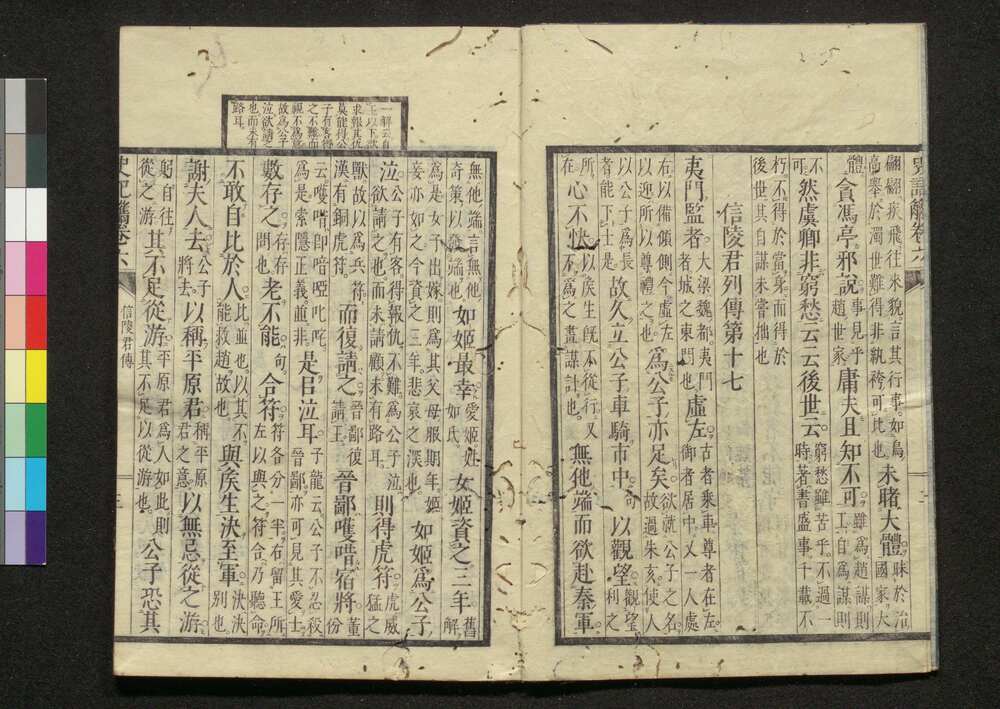 史記觽卷六
翩翩疾飛往來貌言其行事如鳥高舉於濁世難得非紈袴可比也未睹大體昧於治國家大
體貪馮亭邪說事見乎趙世家庸夫且知不可雖爲趙謀則工自爲謀則
不可然虞卿非窮愁云云後世云窮愁雖苦乎不過一時著書盛事千載不
朽不得於當身而得於後世其自謀未嘗拙也
信陵君列傳第十七
夷門監者大梁魏都夷門者城之東門也虛左古者乘車尊者在左御者居中又一人處
右以備傾側今虛左以迎所以尊禮之也爲公子亦足矣欲就公子之名故過朱亥使人
以公子爲長者能下士是故久立公子車騎市中句以觀望觀望利之
所在心不快以侯生既不從行又不爲之畫謀計也無他端而欲赴秦軍
一解云自
王以下欲
求報其仇
莫能得公
子有客得
之不難而
視不爲意
故爲公子
泣欲請之
也而未有
路耳
無他端言無他奇策以發端也如姬最幸愛姬姓如氏女姬資之三年舊解
爲是女子出嫁則爲其父母服期年姬妾亦如之今資之三年悲哀之深也如姬爲公子
泣公子有客得報仇不難爲公子泣欲請之也而未請顧未有路耳則得虎符虎威猛之
獸故以爲兵符漢有銅虎符而復請之晉鄙復請王晉鄙嚄唶宿將董份
云嚄唶卽喑啞叱咤爲是索隱正義並非是日泣耳子龍云公子不忍殺晉鄙亦可見其愛士
數存之存存問也老不能句合符符各分一半右留王所左以與之符合乃聽命
不敢自比於人比並也以其不能救趙故也與侯生決至軍決決別也
謝夫人去公子將去以稱平原君稱平原君之意以無忌從之游
躬自往從之游其不足從游平原君爲人如此則其不足以從游也公子恐其
史記觽卷六
信陵君傳
三